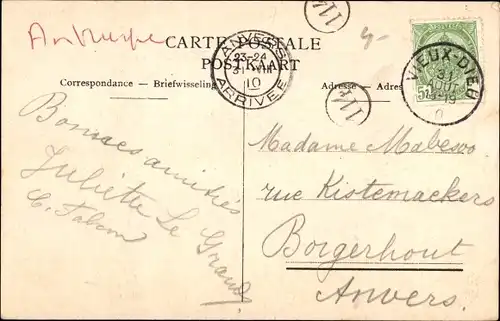 Antwerpen
CARTE POSTALE
POSTKAART
Correspondance — Briefwisseling
Adresse — Adres
ANVERS
23-24
31 VIII
10
ARRIVÉE
VIEUX-DIEU
31
114
114
Bonnes amitiés
Juliette Le Grand
C. Fabon
Madame Mabesoo
rue Kistemaeckers
Borgerhout
Anvers.